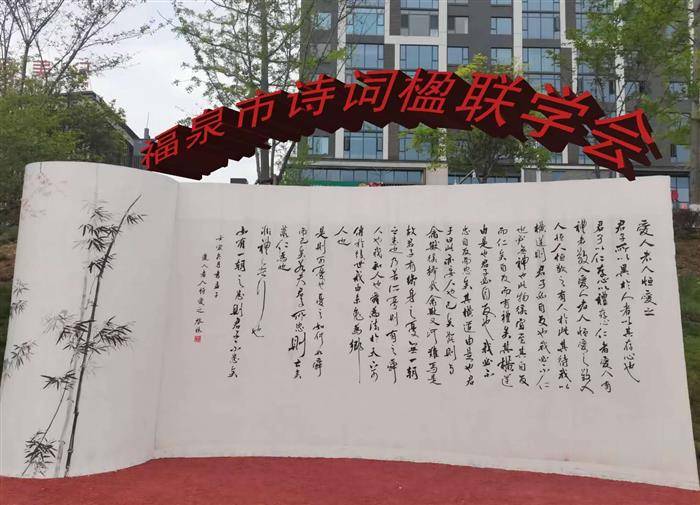 福泉市诗词楹联学会
爱人者人恒爱之
君子所以異於人者以其存心也
君子以仁存心以禮存心仁者爱人有
禮者敬人爱人者人恒爱之敬人
人恒敬之有人於此其待我以
横逆則君子必自反也我必不仁
也必無禮也此物奚宜至其自反
而仁矣自反而有禮矣其横逆
由是也君子必自反也我必不
忠自反而忠矣其横逆由是也君
子曰此亦妄人也已矣如此則与
禽獸奚择哉於禽獸又何難焉是
故君子有终身之憂無一朝
之患也乃若所憂則有之舜
人也我亦人也舜為法於天下可
傳於後世我由未免為鄉
人也
是則可憂也憂之如何如舜
而已矣若夫君子所患則亡矣
非仁無為也
非禮無行也
如有一朝之患則君子不患矣
爱人者人恒爱之